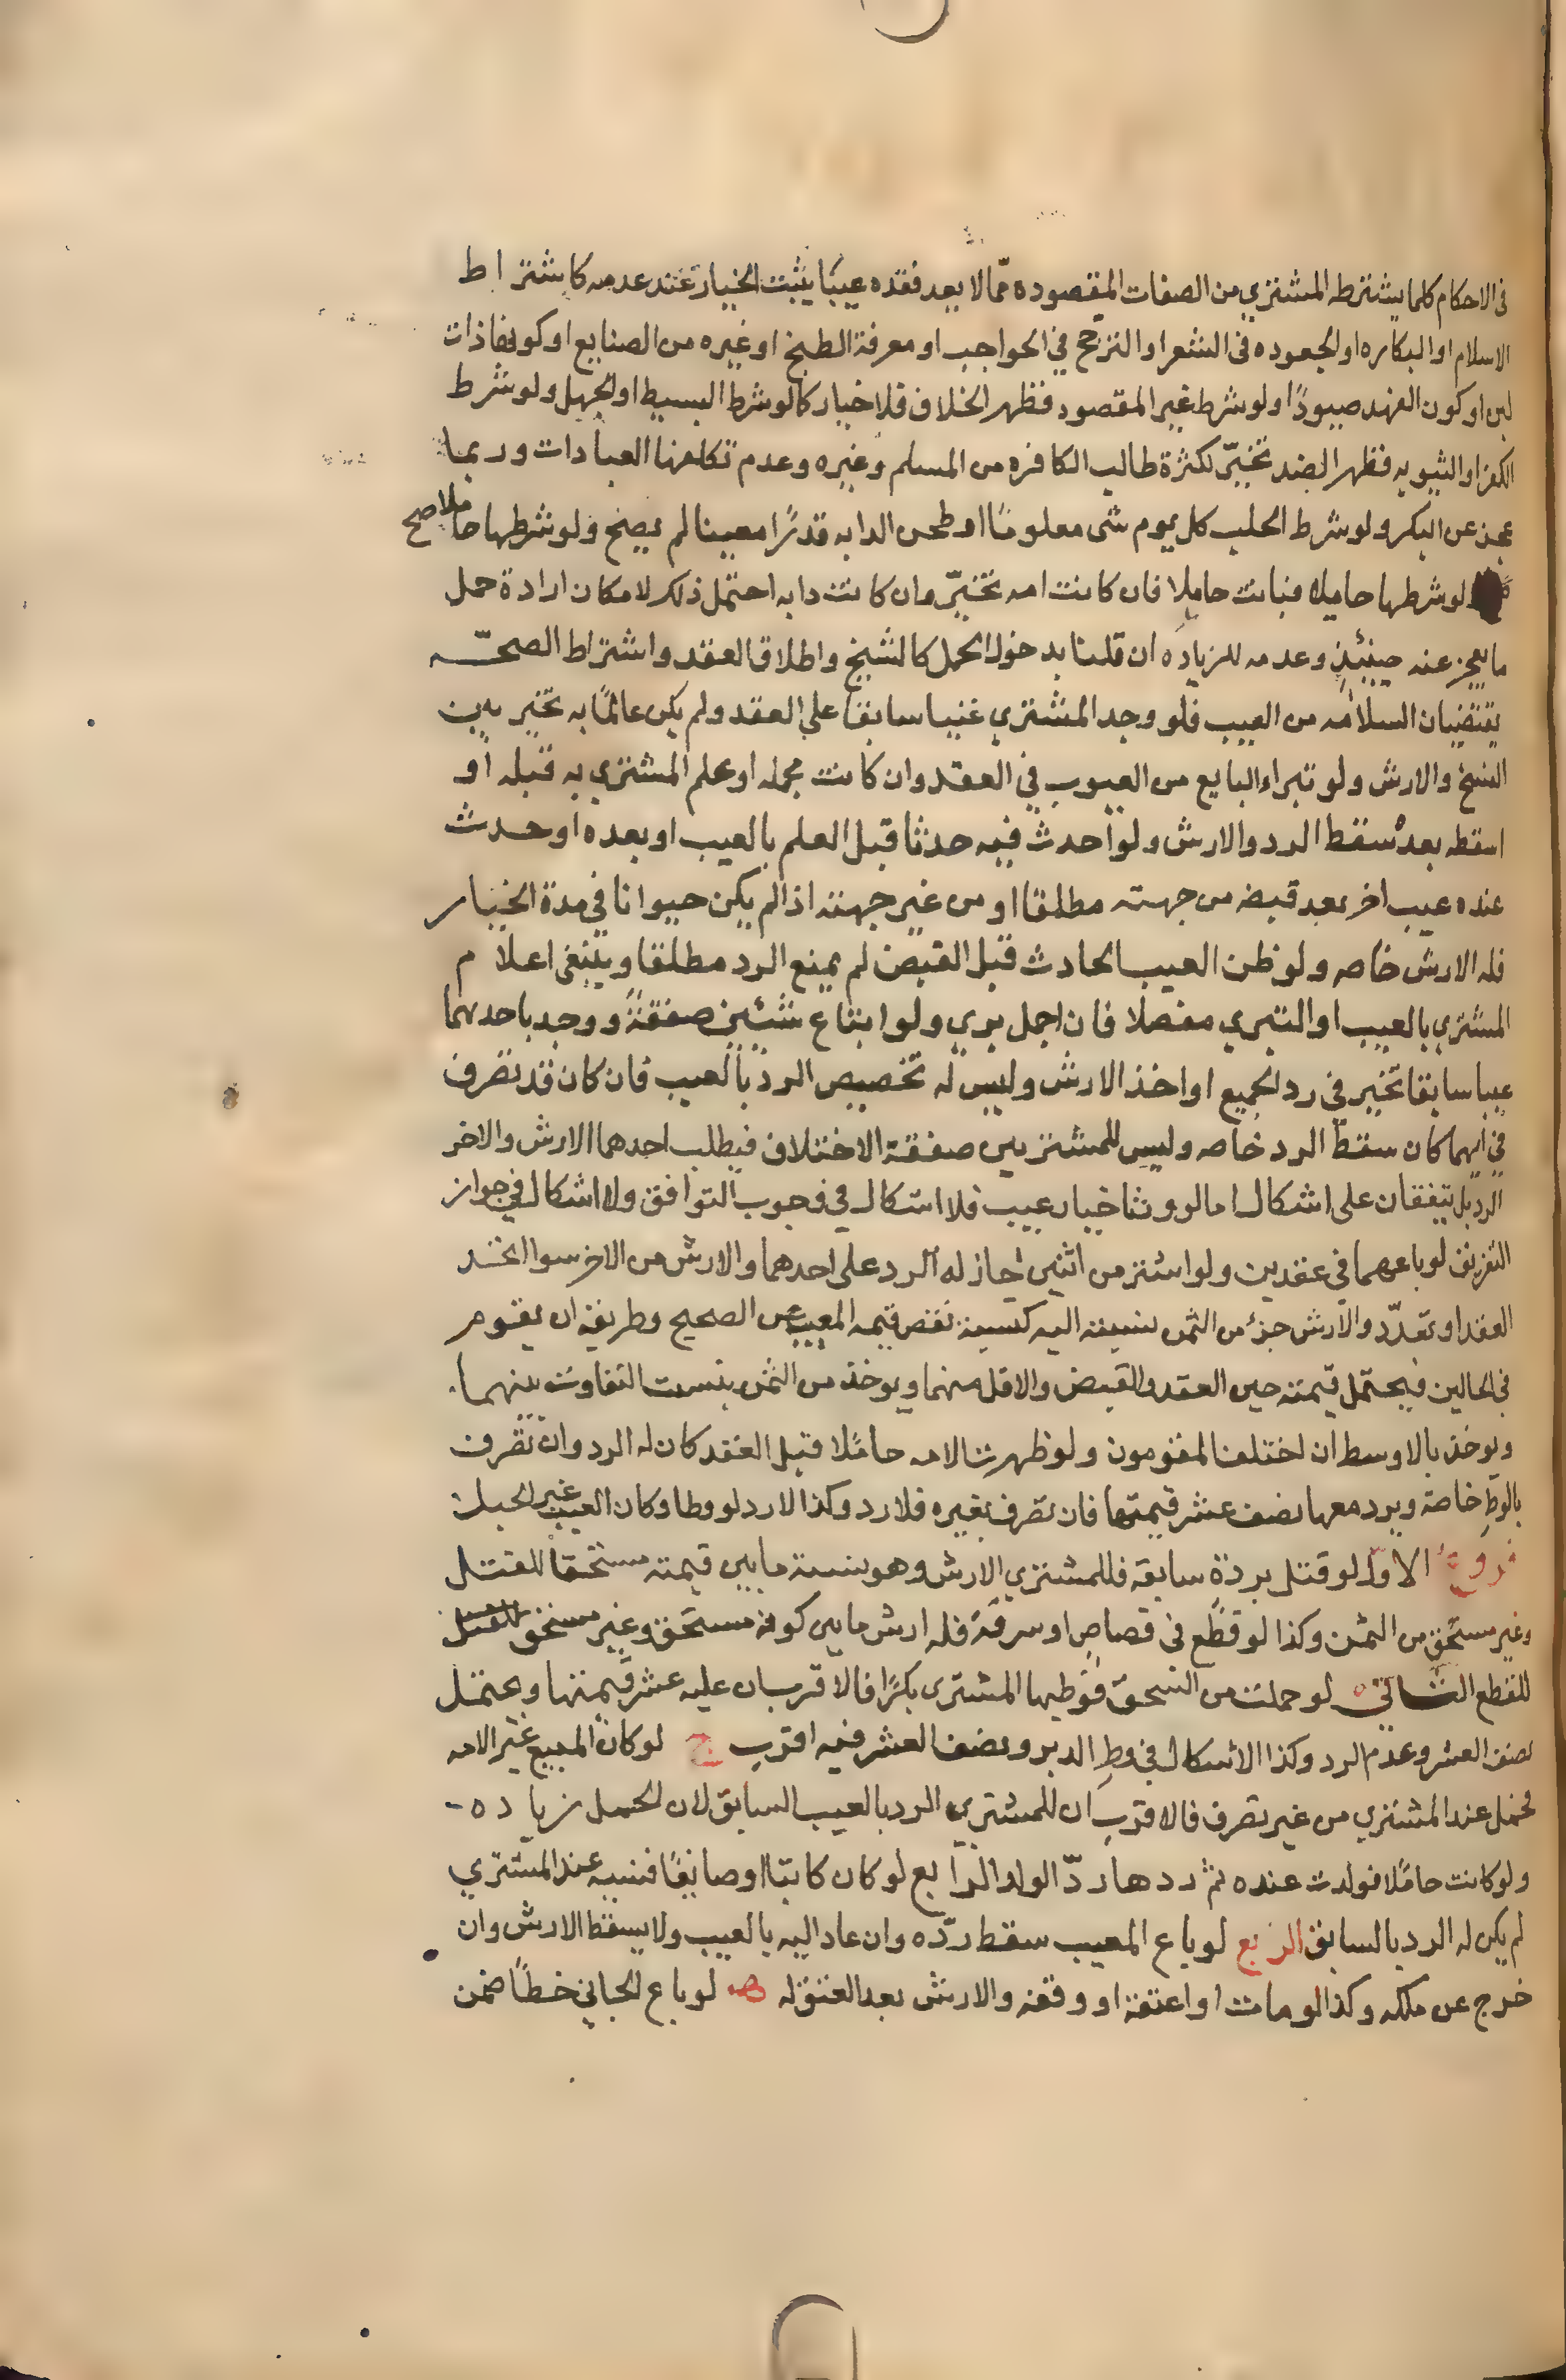 في الاحكام كلما يشترطه المشتري من الصفات المقصوده ممّا لا يعد فقده عيبًا يثبت الخيار عند عدمه كاشتراط
الاسلام او البكاره او الجعوده في الشعر او التزجج في الحواجب او معرفة الطبخ او غيره من الصنايع او كونها ذات
لبن او كون الفهد صيودًا ولو شرط غير المقصود فظهر الخلاف فلا خيار كما لو شرط السبط او الجهل ولو شرط
الكفر او الثيوبه فظهر الضد تخيّر لكثرة طالب الكافره من المسلم وغيره وعدم تكلفها العبادات وربما
عجز عن البكر ولو شرط الحلب كل يوم شى معلومًا او طحن الدابه قدرًا معينا لم يصح ولو شرطها حاملا صح
ولو شرطها حايلا فبانت حاملا فان كانت امه تخيّر وان كانت دابه احتمل ذلك لامكان ارادة حمل
ما يعجز عنه حينئذٍ وعدمه للزياده ان قلنا بدخول الحمل كالشيخ واطلاق العقد واشتراط الصحّه
يقتضيان السلامه من العيب فلو وجد المشتري عيبا سابقا على العقد ولم يكن عالمًا به تخير بين
الفسخ والارش ولو تبراء البايع من العيوب في العقد وان كانت مجمله او علم المشتري به قبله او
اسقطه بعده سقط الرد والارش ولو احدث فيه حدثا قبل العلم بالعيب او بعده او حدث
عنده عيب اخر بعد قبضه من جهته مطلقا او من غير جهته اذا لم يكن حيوانا في مدة الخيار
فله الارش خاصه ولو ظن العيب الحادث قبل القبض لم يمنع الرد مطلقا وينبغى اعلام
المشتري بالعيب او التبري مفصلا فان اجمل بري ولو ابتاع شئين صفقةً ووجد باحدهما
عيبا سابقا تخير في رد الجميع او اخذ الارش وليس له تخصيص الرد بالعيب فان كان قد تصرف
في ايهما كان سقط الرد خاصه وليس للمشتريين صفقة الاختلاف فيطلب احدهما الارش والاخر
الرد بل يتفقان على اشكال اما لو ورثا خيار عيب فلا اشكال في وجوب التوافق ولا اشكال في جواز
التفريق لو باعهما في عقدين ولو اشتر من اثنين جاز له الرد على احدهما والارش من الاخر سوا اتحد
العقد او تعدّد والارش جزء من الثمن نسبته اليه كنسبة نقص قيمه المعيب عن الصحيح وطريقه ان يقوم
في الحالين فيحتمل قيمته حين العقد والقبض والاقل منهما ويوخذ من الثمن بنسبت التفاوت بينهما
ويوخذ بالاوسط ان اختلف المقومون ولو ظهرت الامه حاملًا قبل العقد كان له الرد وان تصرف
بالوطِ خاصة ويرد معها نصف عشر قيمتها فان تصرف بغيره فلا رد وكذا لا رد لو وطا وكان العيب غير الحبل
فروع الاول لو قتل بردة سابقه فللمشتري الارش وهو نسبة ما بين قيمته مستحقا للقتل
وغير مستحق من الثمن وكذا لو قطع في قصاص او سرقة فله ارش ما بين كونه مستحق وغير مستحق
للقطع الثانى لو حملت من السحق فوطيها المشترى بكرًا فالاقرب ان عليه عشر قيمتها ويحتمل
نصف العشر وعدم الرد وكذا الاشكال في وطِ الدبر ونصف العشر فيه اقرب ج لو كان المبيع غير الامه
فحمل عند المشتري من غير تصرف فالاقرب ان للمشتري الرد بالعيب السابق لان الحمل زياده
ولو كانت حاملًا فولدت عنده ثم ردها ردّ الولد الرابع لو كان كاتبا او صايغًا فنسيه عند المشتري
لم يكن له الرد بالسابق الرابع لو باع المعيب سقط ردّه وان عاد اليه بالعيب ولا يسقط الارش وان
خرج عن ملكه وكذا لو مات او اعتقه او وقفه والارش بعد العتق له ه لو باع الجاني خطأ ضمن